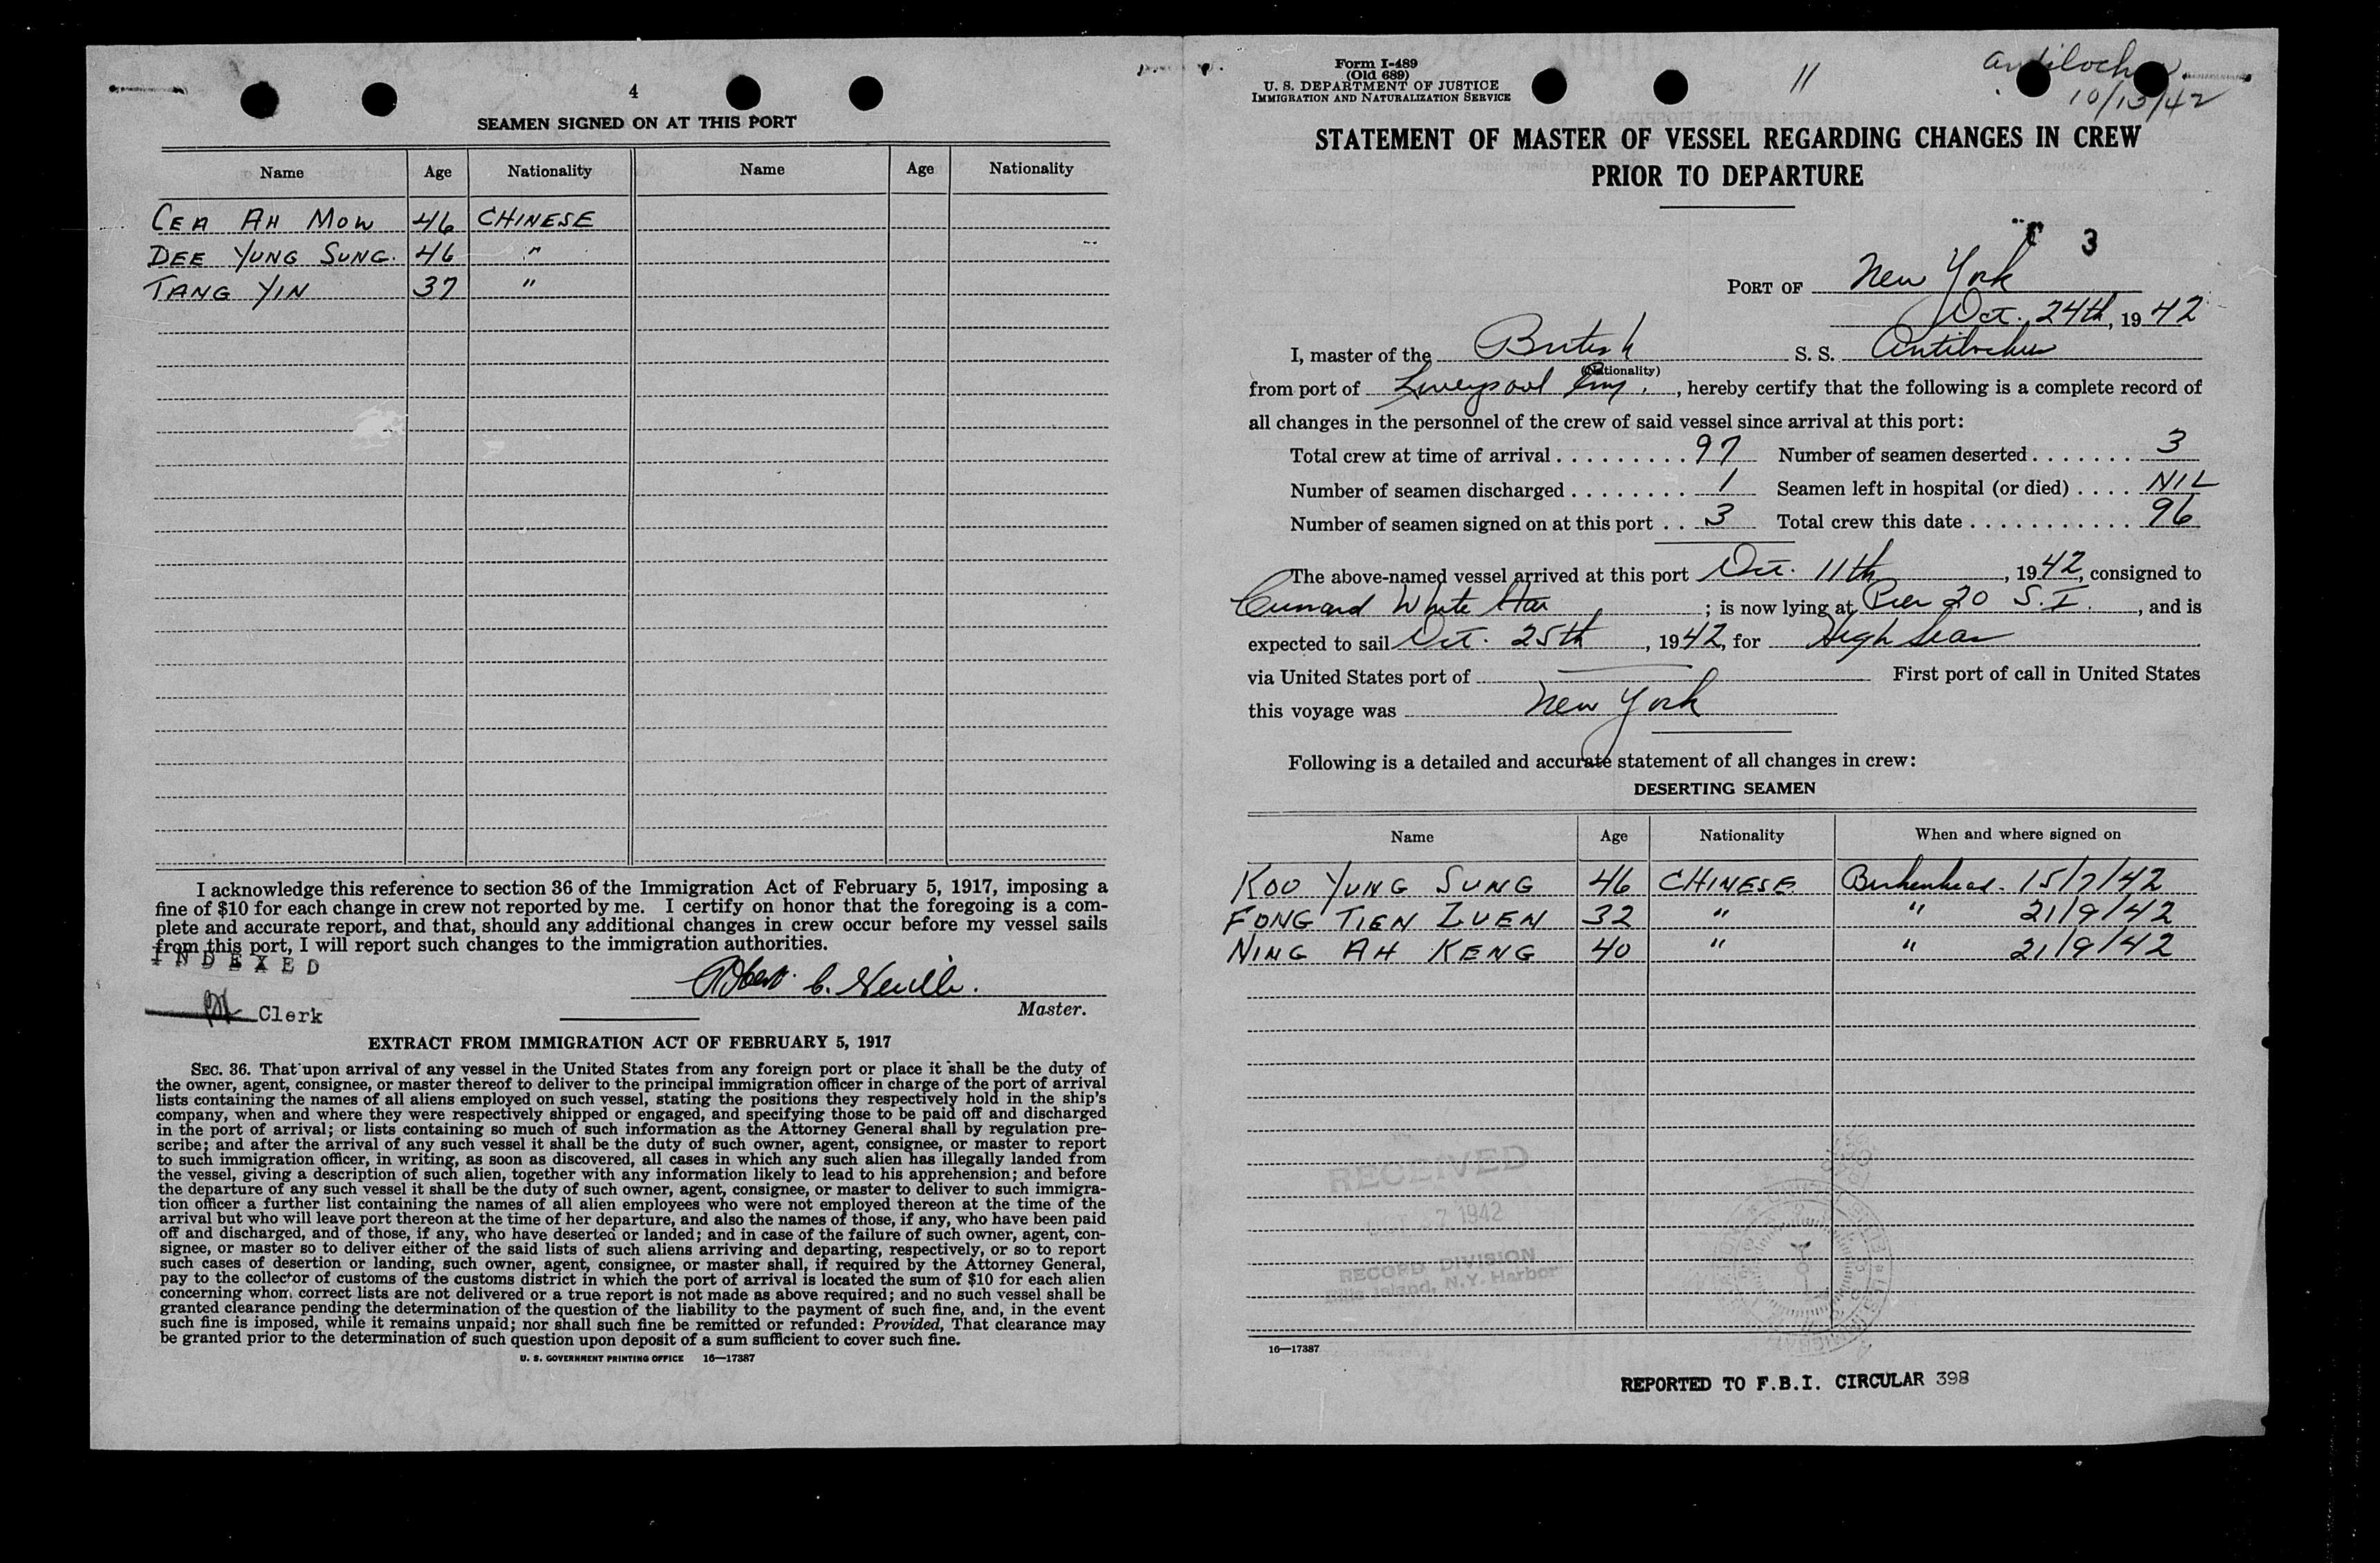 4
SEAMEN SIGNED ON AT THIS PORT
Name Age Nationality Name Age Nationality
CEA AH MOW 46 CHINESE
DEE YUNG SUNG. 46 "
TANG YIN 37 "
I acknowledge this reference to section 36 of the Immigration Act of February 5, 1917, imposing a
fine of $10 for each change in crew not reported by me. I certify on honor that the foregoing is a com-
plete and accurate report, and that, should any additional changes in crew occur before my vessel sails
from this port, I will report such changes to the immigration authorities.
INDEXED
Clerk
Master.
EXTRACT FROM IMMIGRATION ACT OF FEBRUARY 5, 1917
SEC. 36. That upon arrival of any vessel in the United States from any foreign port or place it shall be the duty of
the owner, agent, consignee, or master thereof to deliver to the principal immigration officer in charge of the port of arrival
lists containing the names of all aliens employed on such vessel, stating the positions they respectively hold in the ship's
company, when and where they were respectively shipped or engaged, and specifying those to be paid off and discharged
in the port of arrival; or lists containing so much of such information as the Attorney General shall by regulation pre-
scribe; and after the arrival of any such vessel it shall be the duty of such owner, agent, consignee, or master to report
to such immigration officer, in writing, as soon as discovered, all cases in which any such alien has illegally landed from
the vessel, giving a description of such alien, together with any information likely to lead to his apprehension; and before
the departure of any such vessel it shall be the duty of such owner, agent, consignee, or master to deliver to such immigra-
tion officer a further list containing the names of all alien employees who were not employed thereon at the time of the
arrival but who will leave port thereon at the time of her departure, and also the names of those, if any, who have been paid
off and discharged, and of those, if any, who have deserted or landed; and in case of the failure of such owner, agent, con-
signee, or master so to deliver either of the said lists of such aliens arriving and departing, respectively, or so to report
such cases of desertion or landing, such owner, agent, consignee, or master shall, if required by the Attorney General,
pay to the collector of customs of the customs district in which the port of arrival is located the sum of $10 for each alien
concerning whom correct lists are not delivered or a true report is not made as above required; and no such vessel shall be
granted clearance pending the determination of the question of the liability to the payment of such fine, and, in the event
such fine is imposed, while it remains unpaid; nor shall such fine be remitted or refunded: Provided, That clearance may
be granted prior to the determination of such question upon deposit of a sum sufficient to cover such fine.
U. S. GOVERNMENT PRINTING OFFICE 16—17387
Form I-489
(Old 689)
U. S. DEPARTMENT OF JUSTICE
IMMIGRATION AND NATURALIZATION SERVICE
11
Antilochus
10/13/42
STATEMENT OF MASTER OF VESSEL REGARDING CHANGES IN CREW
PRIOR TO DEPARTURE
3
PORT OF New York
Oct. 24th, 1942
I, master of the British S. S. Antilochus
(Nationality)
from port of Liverpool Eng., hereby certify that the following is a complete record of
all changes in the personnel of the crew of said vessel since arrival at this port:
Total crew at time of arrival . . . . . . . . . 97 Number of seamen deserted . . . . . . . 3
Number of seamen discharged . . . . . . . . 1 Seamen left in hospital (or died) . . . . NIL
Number of seamen signed on at this port . . 3 Total crew this date . . . . . . . . . . . 96
The above-named vessel arrived at this port Oct. 11th, 1942, consigned to
Cunard White Star; is now lying at Pier 20 S.I., and is
expected to sail Oct. 25th, 1942, for High Seas
via United States port of — First port of call in United States
this voyage was New York
Following is a detailed and accurate statement of all changes in crew:
DESERTING SEAMEN
Name Age Nationality When and where signed on
KOO YUNG SUNG 46 CHINESE Birkenhead. 15/7/42
FONG TIEN ZUEN 32 " " 21/9/42
NING AH KENG 40 " " 21/9/42
RECEIVED
27 1942
RECORD DIVISION
Ellis Island, N.Y. Harbor
16—17387
REPORTED TO F.B.I. CIRCULAR 398